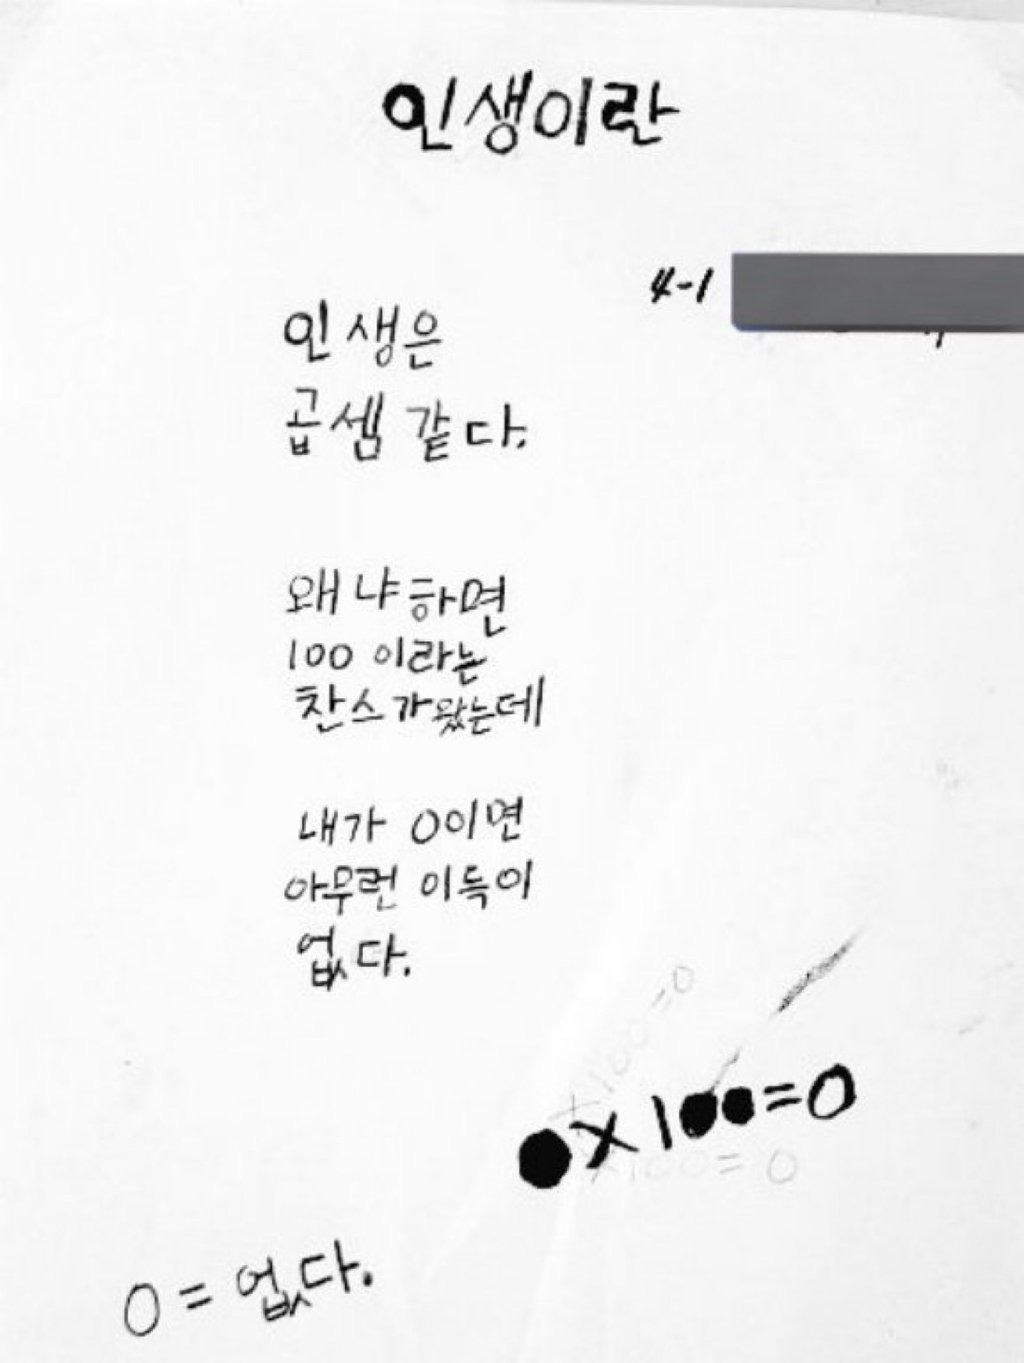 인생이란
4-1
인생은
곱셈 같다.
왜냐하면
100 이라는
찬스가 왔는데
내가 0이면
아무런 이득이
없다.
x100=0
0x100=0
x100=0
0 = 없다.